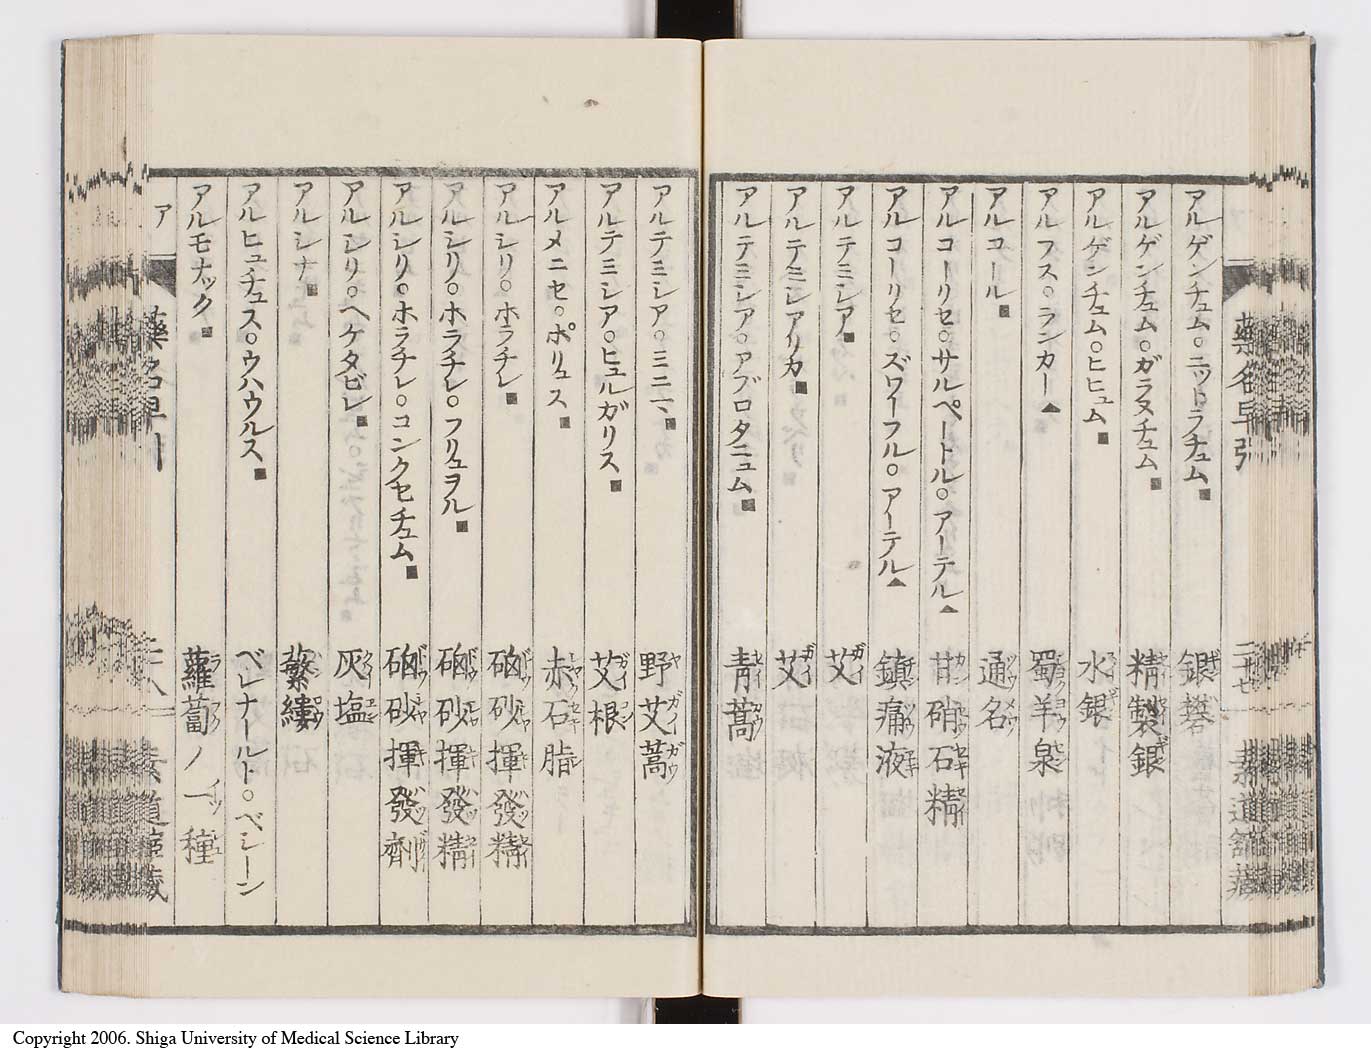 藥名早引
二十七
アルゲンチュム○ニットラチュム■ 銀礬
アルゲンチュム○ガラヌチュム■ 精製銀
アルゲンチュム○ヒヒュム■ 水銀
アルフス○ランカー▲ 蜀羊泉
アルコール■ 通名
アルコーリセ○サルペートル○アーテル▲ 甘硝石精
アルコーリセ○ズワーフル○アーテル▲ 鎮痛液
アルテミシア■ 艾
アルテミシアリカ■ 艾
アルテミシア○アブロタニュム■ 青蒿
アルテミシア○ミニー、■ 野艾蒿
アルテミシア○ヒュルガリス■ 艾根
アルメニセ○ポリュス■ 赤石脂
アルシリ○ホラチレ■ 硇砂揮發精
アルシリ○ホラチレ○フリュヲル■ 硇砂揮發精
アルシリ○ホラチレ○コンクセチュム■ 硇砂揮發劑
アルシリ○ヘケタビレ■ 灰塩
アルシナ■ 蘩縷
アルヒュチュス○ウハウルス■ ベレナールト○ベシーン
アルモナック■ 蘿蔔ノ一種
ア
Copyright 2006. Shiga University of Medical Science Library